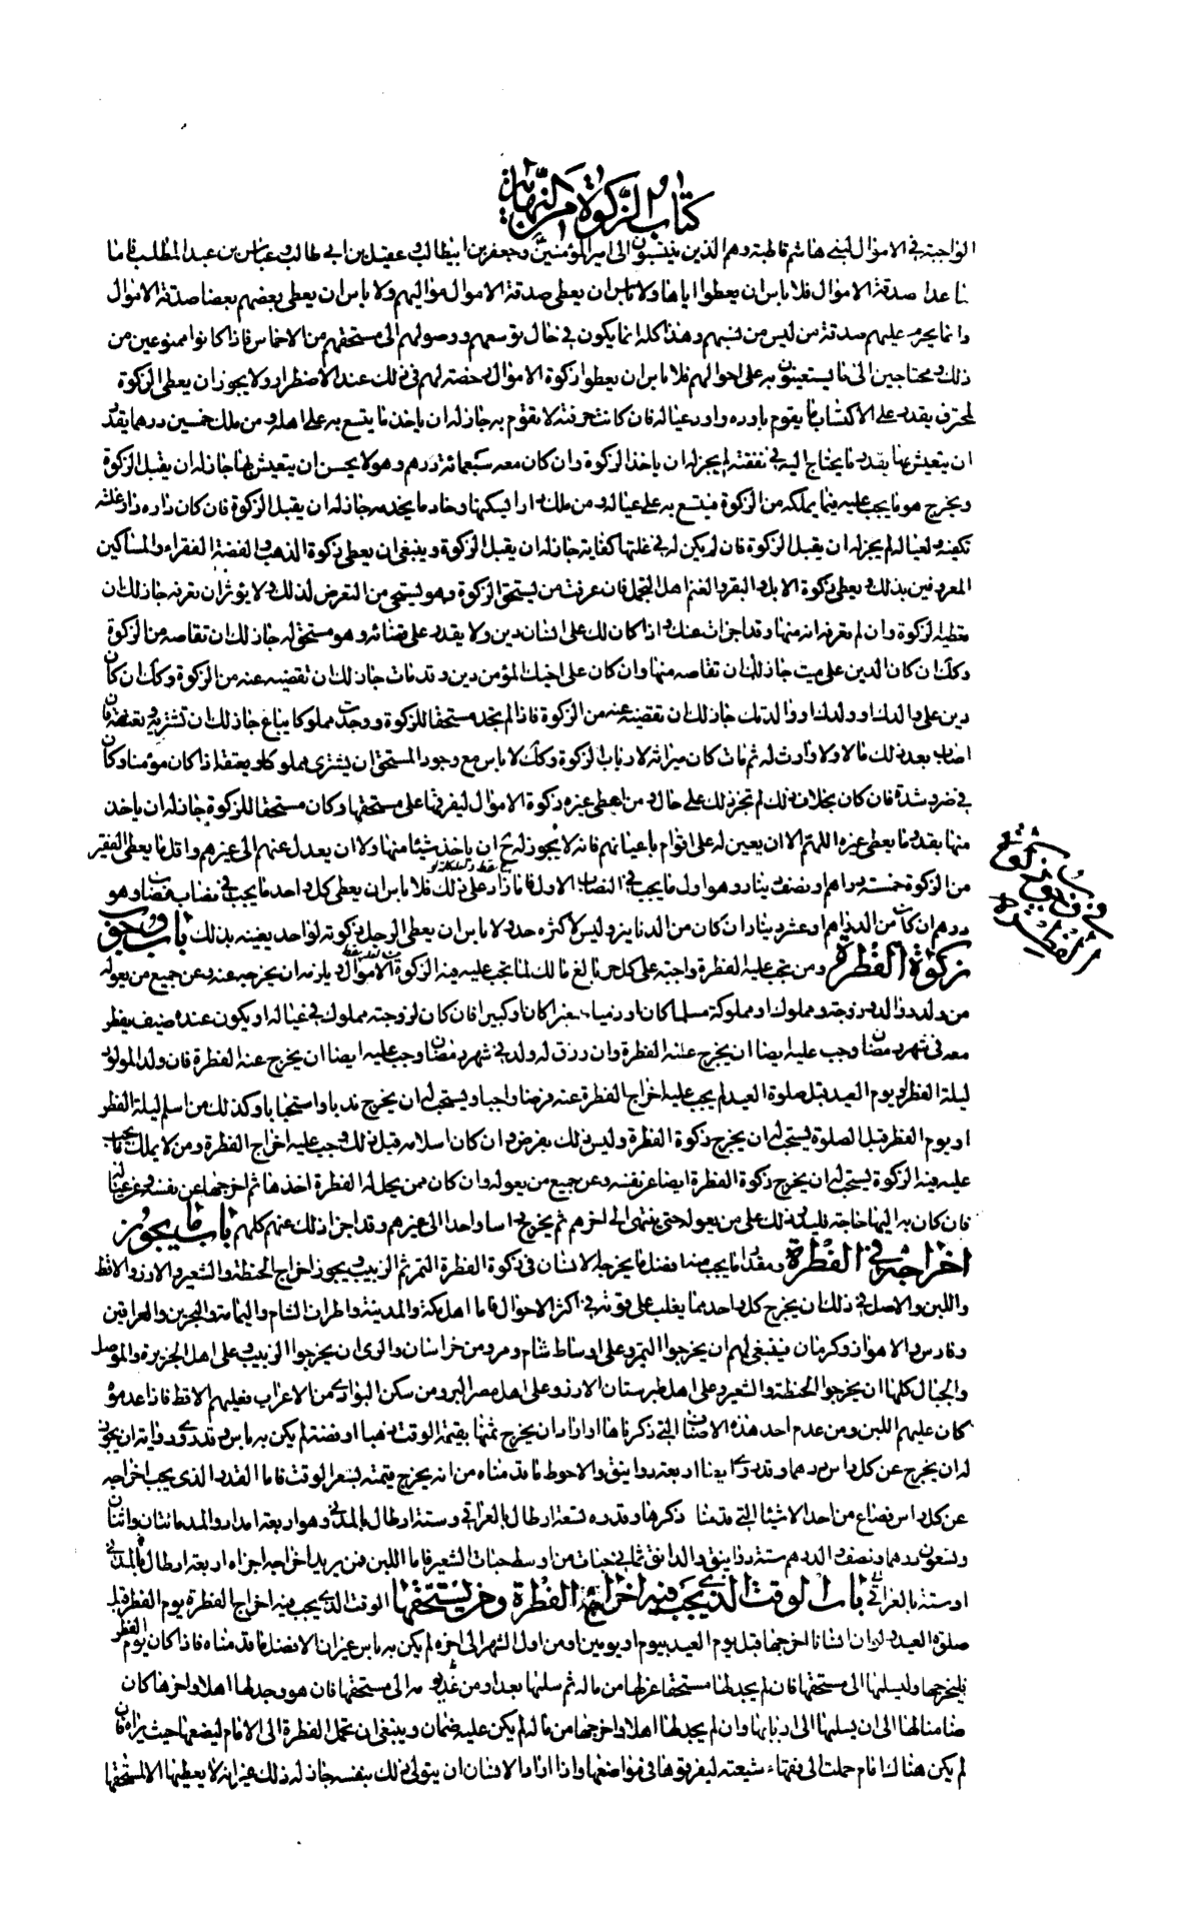 كتاب الزكوة من النهاية
الواجبة في الاموال لبني هاشم قاطبة وهم الذين ينتسبون الى امير المؤمنين وجعفر بن ابيطالب وعقيل بن ابي طالب وعباس بن عبد المطلب فاما
ما عدا صدقة الاموال فلا باس ان يعطوا اياها ولا باس ان يعطى صدقة الاموال مواليهم ولا باس ان يعطى بعضهم بعضا صدقة الاموال
وانما يحرم عليهم صدقة من ليس من نسبهم وهذا كله انما يكون في حال توسعهم ووصولهم الى مستحقهم من الاخماس فاذا كانوا ممنوعين من
ذلك ومحتاجين الى ما يستعينون به على احوالهم فلا باس ان يعطوا زكوة الاموال رخصة لهم في ذلك عند الاضطرار ولا يجوز ان يعطى الزكوة
لمحترف يقدر على الاكتساب ما يقوم باوده واود عياله فان كانت حرفته لا تقوم به جاز له ان ياخذ ما يتسع به على اهله ومن ملك خمسين درهما يقدر
ان يتعيش بها بقدر ما يحتاج اليه في نفقته لم يجز له ان ياخذ الزكوة وان كان معه سبعمائة درهم وهو لا يحسن ان يتعيش بها جاز له ان يقبل الزكوة
ويخرج هو ما يجب عليه فيما يملكه من الزكوة فيتسع به على عياله ومن ملك دارا يسكنها وخادما يخدمه جاز له ان يقبل الزكوة فان كان داره دار غلة
تكفيه ولعياله لم يجز له ان يقبل الزكوة فان لم يكن له في غلتها كفاية جاز له ان يقبل الزكوة وينبغي ان يعطى زكوة الذهب والفضة الفقراء والمساكين
المعروفين بذلك ويعطى زكوة الابل والبقر والغنم اهل التجمل فان عرفت من يستحق الزكوة وهو يستحيي من التعرض لذلك ولا يؤثر ان تعرفه جاز لك ان
تعطيه الزكوة وان لم تعرفه انه منها وقد اجزات عنك واذا كان لك على انسان دين ولا يقدر على قضائه وهو مستحق له جاز لك ان تقاصه من الزكوة
وكك ان كان الدين على ميت جاز لك ان تقاصه منها وان كان على اخيك المؤمن دين وقد مات جاز لك ان تقضيه عنه من الزكوة وكك ان كان
دين على والدك او ولدك او والدتك جاز لك ان تقضيه عنه من الزكوة فاذا لم تجد مستحقا للزكوة ووجدت مملوكا يباع جاز لك ان تشتريه وتعتقه فان
اصاب بعد ذلك مالا ولا وارث له ثم مات كان ميراثه لارباب الزكوة وكك لا باس مع وجود المستحق ان يشترى مملوكا ويعتق اذا كان مؤمنا وكان
في ضر وشدة فان كان بخلاف ذلك لم تجز ذلك على حال ومن اعطى غيره زكوة الاموال ليفرقها على مستحقها وكان مستحقا للزكوة جاز له ان ياخذ
منها بقدر ما يعطى غيره اللهم الا ان يعين له على اقوام باعيانهم فانه لا يجوز له ح ان ياخذ شيئا منها ولا ان يعدل عنهم الى غيرهم واقل ما يعطى الفقير
من الزكوة خمسة دراهم او نصف دينار وهو اول ما يجب في النصاب الاول فاما ما زاد على ذلك فلا باس ان يعطى كل واحد ما يجب في نصاب نصاب وهو
درهم ان كان من الدراهم او عشر دينار ان كان من الدنانير وليس لاكثره حد ولا باس ان يعطى الرجل زكوته لواحد يغنيه بذلك باب وجوب
زكوة الفطرة ومن تجب عليه الفطرة واجبة على كل حر بالغ مالك لما تجب عليه فيه الزكوة الاموال ويلزمه ان يخرجه عنه وعن جميع من يعوله
من ولد ووالد وزوجة ومملوك او مملوكة مسلما كان او ذميا صغيرا كان او كبيرا فان كان لزوجته مملوك في عياله او يكون عنده ضيف يفطر
معه في شهر رمضان وجب عليه ايضا ان يخرج عنه الفطرة وان رزق له ولد في شهر رمضان وجب عليه ايضا ان يخرج عنه الفطرة فان ولد المولود
ليلة الفطر او يوم العيد قبل صلوة العيد لم يجب عليه اخراج الفطرة عنه فرضا واجبا ويستحب له ان يخرج ندبا واستحبابا وكذلك من اسلم ليلة الفطر
او يوم الفطر قبل الصلوة يستحب له ان يخرج زكوة الفطرة وليس ذلك بفرض وان كان اسلامه قبل ذلك وجب عليه اخراج الفطرة ومن لا يملك ما يجب
عليه فيه الزكوة يستحب له ان يخرج زكوة الفطرة ايضا عن نفسه وعن جميع من يعوله وان كان ممن يحل له الفطرة اخذها ثم اخرجها عن نفسه وعن عياله
فان كان به اليها حاجة فليدر ذلك على من يعوله حتى ينتهى الى اخرهم ثم يخرج راسا واحدا الى غيرهم وقد اجزا ذلك عنهم كلهم باب ما يجوز
اخراجه في الفطرة ومقدار ما يجب منها افضل ما يخرجه الانسان في زكوة الفطرة التمر ثم الزبيب ويجوز اخراج الحنطة والشعير والارز والاقط
واللبن والاصل في ذلك ان يخرج كل واحد مما يغلب على قوته في اكثر الاحوال فاما اهل مكة والمدينة واطراف الشام واليمامة والبحرين والعراقين
وفارس والاهواز وكرمان فينبغي لهم ان يخرجوا التمر وعلى اوساط شام ومرو من خراسان والرى ان يخرجوا الزبيب وعلى اهل الجزيرة والموصل
والجبال كلها ان يخرجوا الحنطة والشعير وعلى اهل طبرستان الارز وعلى اهل مصر البر ومن سكن البوادي من الاعراب فعليهم الاقط فاذا عدموه
كان عليهم اللبن ومن عدم احد هذه الاصناف التي ذكرناها او اراد ان يخرج ثمنها بقيمة الوقت ذهبا او فضة لم يكن به باس وقد روى رواية ان يجوز
له ان يخرج عن كل راس درهما وقد روى ايضا اربعة دوانيق والاحوط ما قدمناه من انه يخرج قيمته بسعر الوقت فاما القدر الذي يجب اخراجه
عن كل راس فصاع من احد الاشياء التي قدمنا ذكرها وقدره تسعة ارطال بالعراقي وستة ارطال بالمدني وهو اربعة امداد والمد مائتان واثنان
وتسعون درهما ونصف والدرهم ستة دوانيق والدانق ثماني حبات من اوسط حبات الشعير فاما اللبن فمن يريد اخراجه اجزاه اربعة ارطال بالمدني
او ستة بالعراقي باب الوقت الذي يجب فيه اخراج الفطرة ومن يستحقها الوقت الذي يجب فيه اخراج الفطرة يوم الفطر قبل
صلوة العيد ولو ان انسانا اخرجها قبل يوم العيد بيوم او يومين او من اول الشهر الى اخره لم يكن به باس غير ان الافضل ما قدمناه فاذا كان يوم الفطر
فليخرجها وليسلمها الى مستحقها فان لم يجد لها مستحقا عزلها من ماله ثم سلمها بعد او من غد يومه الى مستحقها فان هو وجد لها اهلا واخرها كان
ضامنا لها الى ان يسلمها الى اربابها وان لم يجد لها اهلا واخرجها من ماله لم يكن عليه ضمان وينبغي ان تحمل الفطرة الى الامام ليضعها حيث يراه فان
لم يكن هناك امام حملت الى فقهاء شيعته ليفرقوها في مواضعها واذا اراد الانسان ان يتولى ذلك بنفسه جاز له ذلك غير انه لا يعطيها الا لمستحقها
الفطرة